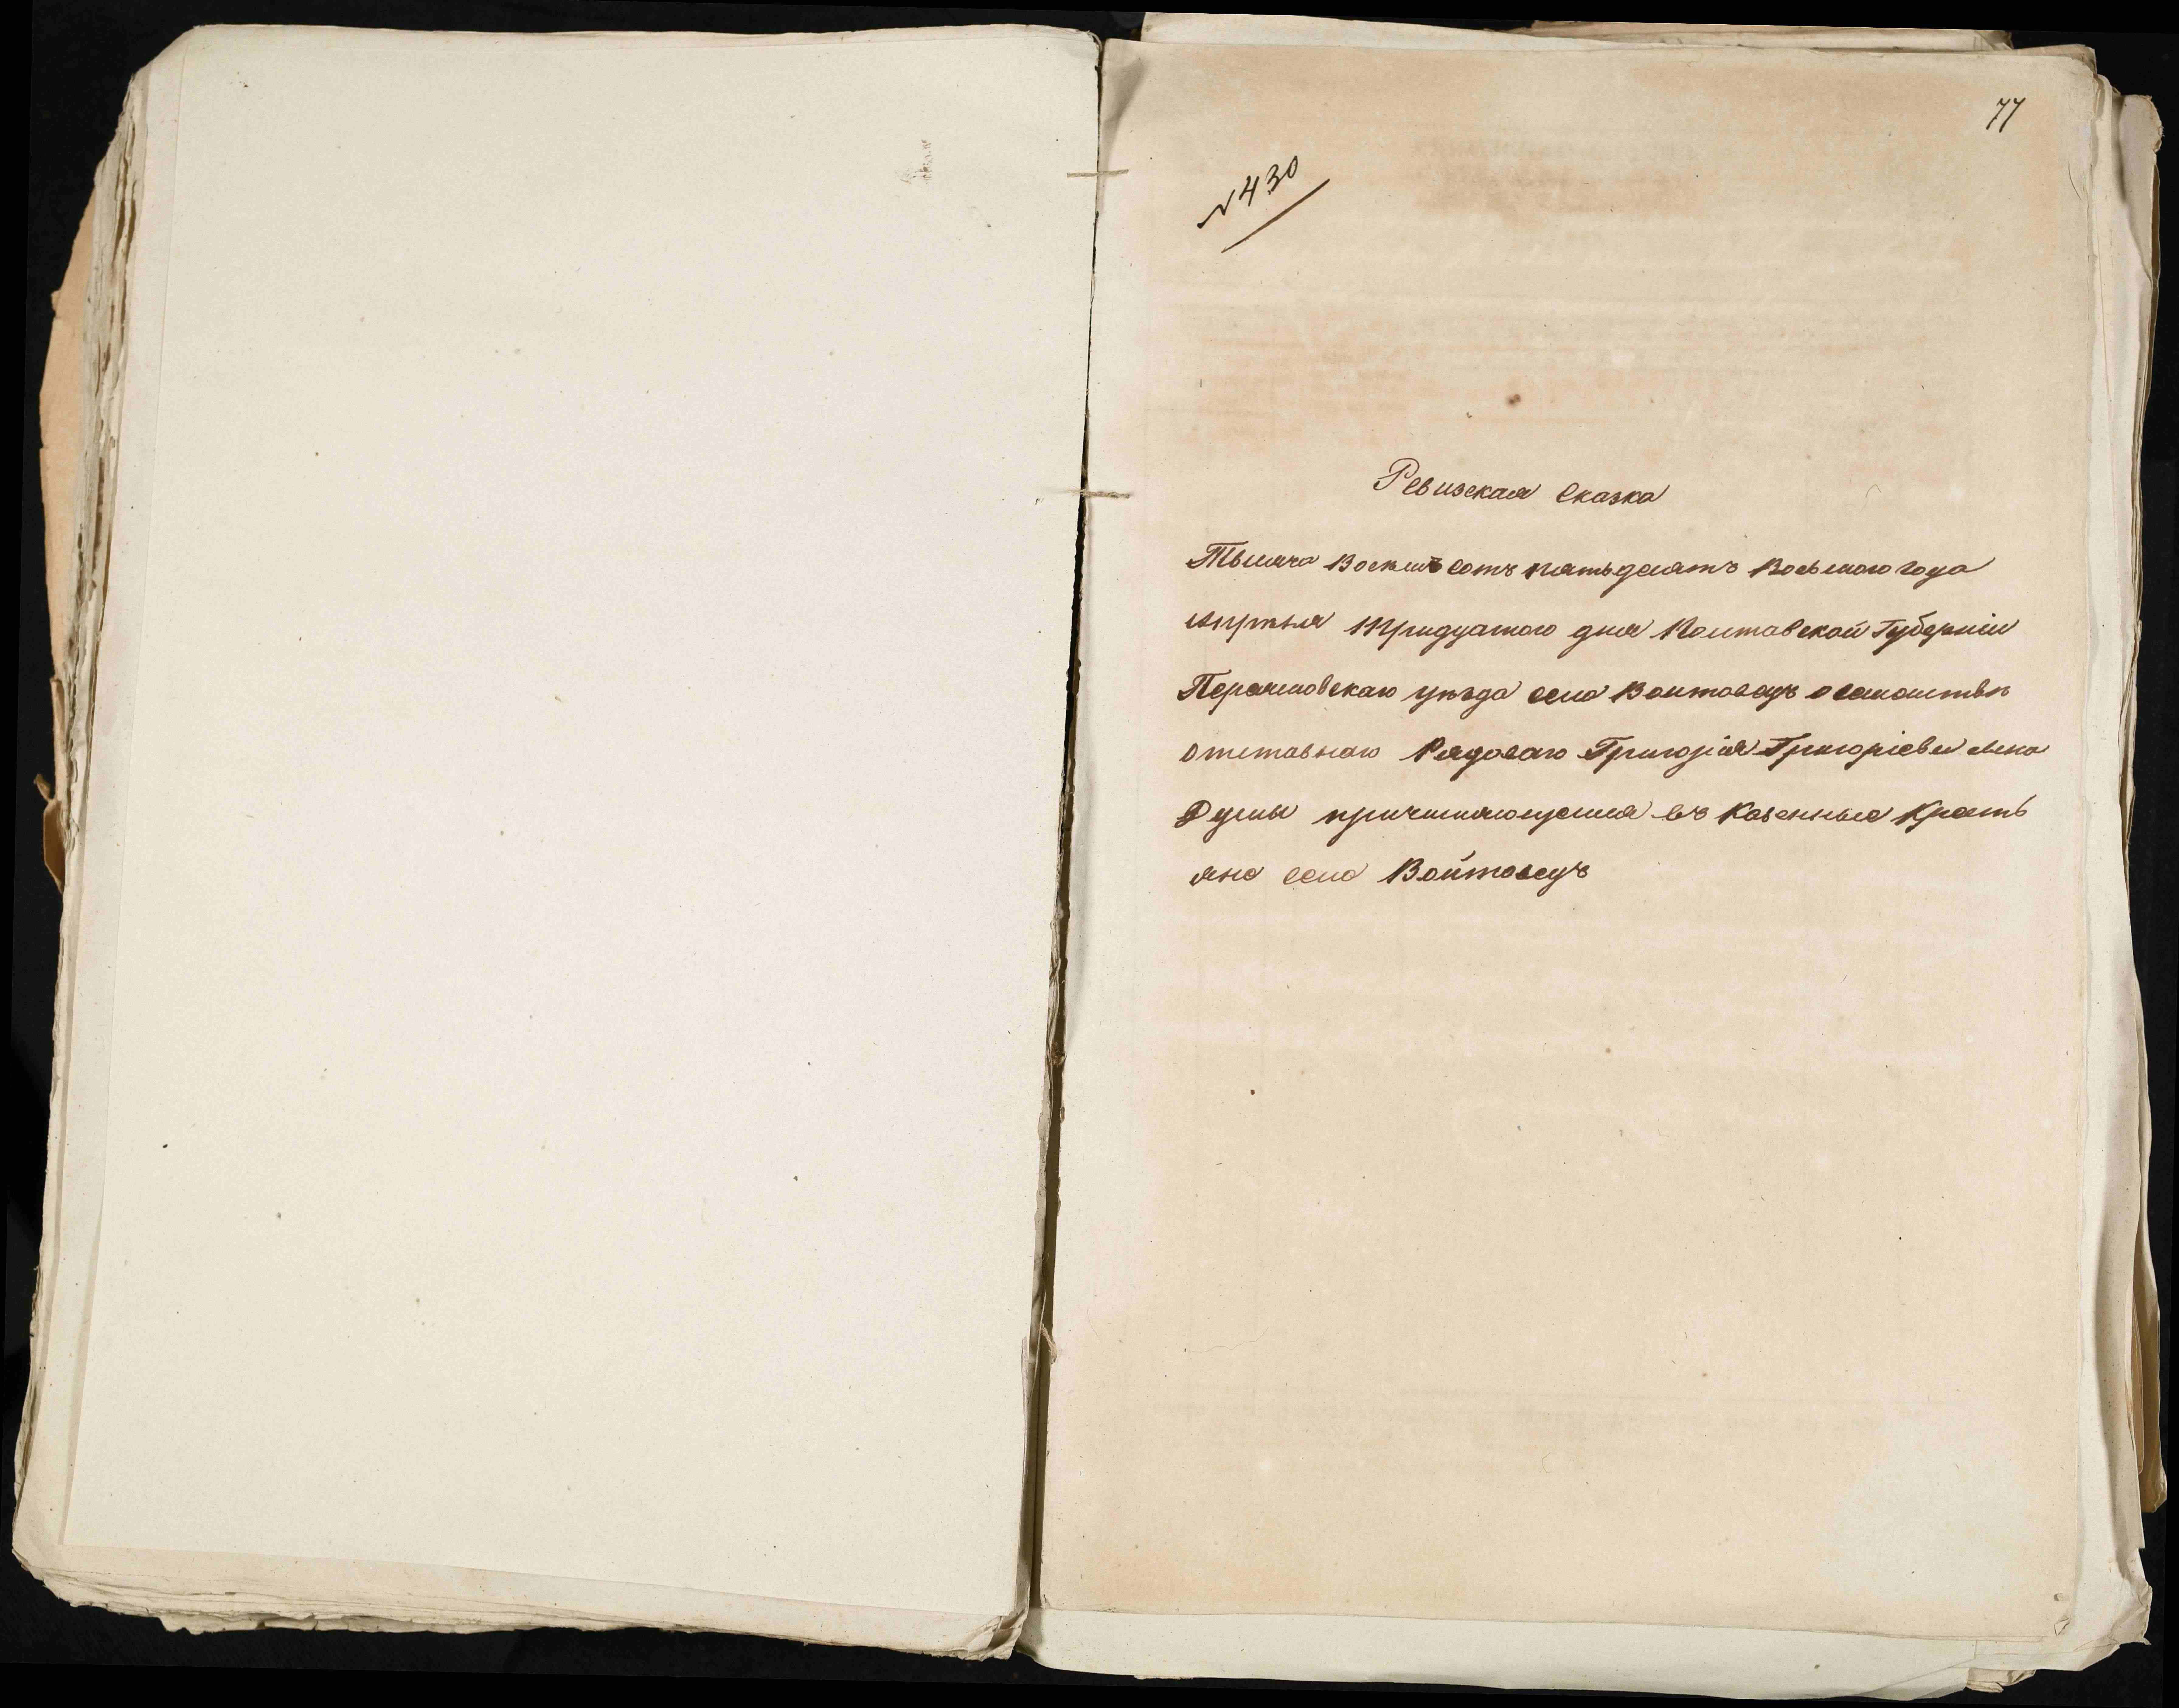 77
№ 430
Ревизская сказка
Тысяча Восемь сотъ пятьдесятъ Восьмого года
Апрѣля Тридцатого дня Полтавской Губерніи
уѣзда села Войтовецъ о семействѣ
отставнаго Рядоваго Григорія Григорієва сына
Думы причисляющемся въ Казенные Крестъ
яне села Войтовецъ